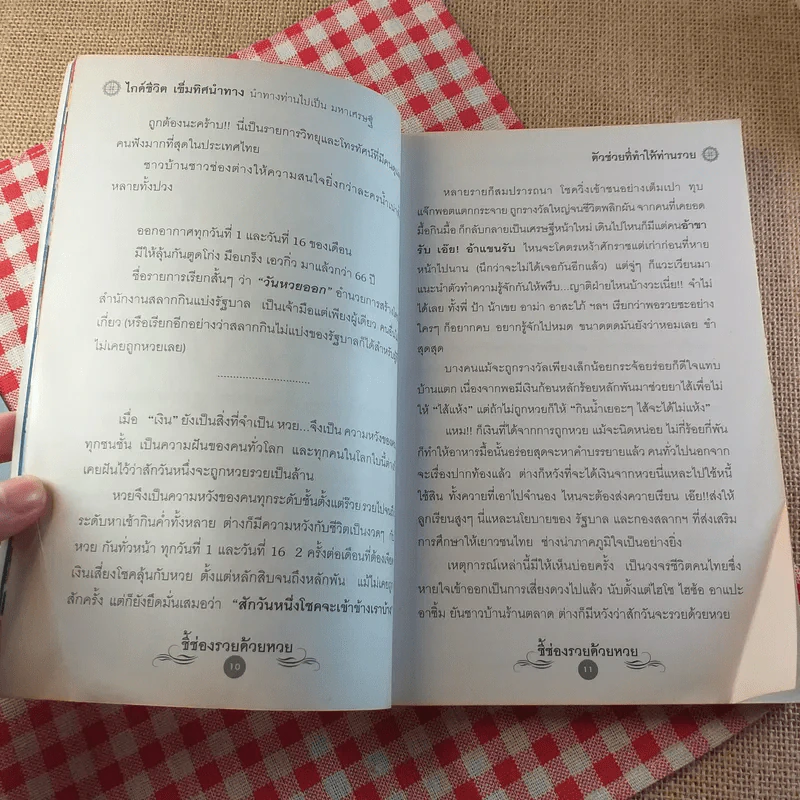 ไกด์ชีวิต เข็มทิศนำทาง นำทางท่านไปเป็น มหาเศรษฐี
ถูกต้องนะคร้าบ!! นี่เป็นรายการวิทยุและโทรทัศน์ที่มีคน
คนฟังมากที่สุดในประเทศไทย
ชาวบ้านชาวช่องต่างให้ความสนใจยิ่งกว่าละครน้ำเน่า
หลายทั้งปวง
ออกอากาศทุกวันที่ 1 และวันที่ 16 ของเดือน
มีให้ลุ้นกันตูดโก่ง มือเกร็ง เอวกิ่ว มาแล้วกว่า 66 ปี
ชื่อรายการเรียกสั้นๆ ว่า “วันหวยออก” อำนวยการสร้างโดย
สำนักงานสลากกินแบ่งรัฐบาล เป็นเจ้ามือแต่เพียงผู้เดียว คนอื่น
เกี่ยว (หรือเรียกอีกอย่างว่าสลากกินไม่แบ่งของรัฐบาลก็ได้สำหรับ
ไม่เคยถูกหวยเลย)
..............................
เมื่อ “เงิน” ยังเป็นสิ่งที่จำเป็น หวย...จึงเป็น ความหวังของ
ทุกชนชั้น เป็นความฝันของคนทั่วโลก และทุกคนในโลกใบนี้ต่าง
เคยฝันไว้ว่าสักวันหนึ่งจะถูกหวยรวยเป็นล้าน
หวยจึงเป็นความหวังของคนทุกระดับชั้นตั้งแต่รวย รวยไปจน
ระดับหาเช้ากินค่ำทั้งหลาย ต่างก็มีความหวังกับชีวิตเป็นงวดๆ
หวย กันทั่วหน้า ทุกวันที่ 1 และวันที่ 16 2 ครั้งต่อเดือนที่ต้อง
เงินเสี่ยงโชคลุ้นกับหวย ตั้งแต่หลักสิบจนถึงหลักพัน แม้ไม่เคยถูก
สักครั้ง แต่ก็ยังยึดมั่นเสมอว่า “สักวันหนึ่งโชคจะเข้าข้างเราบ้าง
ชี้ช่องรวยด้วยหวย
10
ตัวช่วยที่ทำให้ท่านรวย
หลายรายก็สมปรารถนา โชควิ่งเข้าชนอย่างเต็มเปา ทุบ
แจ๊กพอตแตกกระจาย ถูกรางวัลใหญ่จนชีวิตพลิกผัน จากคนที่เคยอด
มื้อกินมื้อ ก็กลับกลายเป็นเศรษฐีหน้าใหม่ เดินไปไหนก็มีแต่คนอ้าขา
รับ เอ๊ย! อ้าแขนรับ ไหนจะโคตรเหง้าศักราชแต่เก่าก่อนที่หาย
หน้าไปนาน (นึกว่าจะไม่ได้เจอกันอีกแล้ว) แต่จู่ๆ ก็แวะเวียนมา
แนะนำตัวทำความรู้จักกันให้พรึบ...ญาติฝ่ายไหนบ้างวะเนี่ย!! จำไม่
ได้เลย ทั้งพี่ ป้า น้าเขย อาม่า อาสะใภ้ ฯลฯ เรียกว่าพอรวยซะอย่าง
ใครๆ ก็อยากคบ อยากรู้จักไปหมด ขนาดตดมันยังว่าหอมเลย ขำ
สุดสุด
บางคนแม้จะถูกรางวัลเพียงเล็กน้อยกระจ้อยร่อยก็ดีใจแทบ
บ้านแตก เนื่องจากพอมีเงินก้อนหลักร้อยหลักพันมาช่วยยาไส้เพื่อไม่
ให้ “ไส้แห้ง” แต่ถ้าไม่ถูกหวยก็ให้ “กินน้ำเยอะๆ ไส้จะได้ไม่แห้ง”
แหม!! ก็เงินที่ได้จากการถูกหวย แม้จะนิดหน่อย ไม่กี่ร้อยกี่พัน
ก็ทำให้อาหารมื้อนั้นอร่อยสุดจะหาคำบรรยายแล้ว คนทั่วไปนอกจาก
จะเรื่องปากท้องแล้ว ต่างก็หวังที่จะได้เงินจากหวยนี่แหละไปใช้หนี้
ใช้สิน ทั้งควายที่เอาไปจำนอง ไหนจะต้องส่งควายเรียน เอ๊ย!!ส่งให้
ลูกเรียนสูงๆ นี่แหละนโยบายของ รัฐบาล และกองสลากฯ ที่ส่งเสริม
การศึกษาให้เยาวชนไทย ช่างน่าภาคภูมิใจเป็นอย่างยิ่ง
เหตุการณ์เหล่านี้มีให้เห็นบ่อยครั้ง เป็นวงจรชีวิตคนไทยซึ่ง
หายใจเข้าออกเป็นการเสี่ยงดวงไปแล้ว นับตั้งแต่ไฮโซ ไฮซ้อ อาแปะ
อาซิ้ม ยันชาวบ้านร้านตลาด ต่างก็มีหวังว่าสักวันจะรวยด้วยหวย
ชี้ช่องรวยด้วยหวย
11